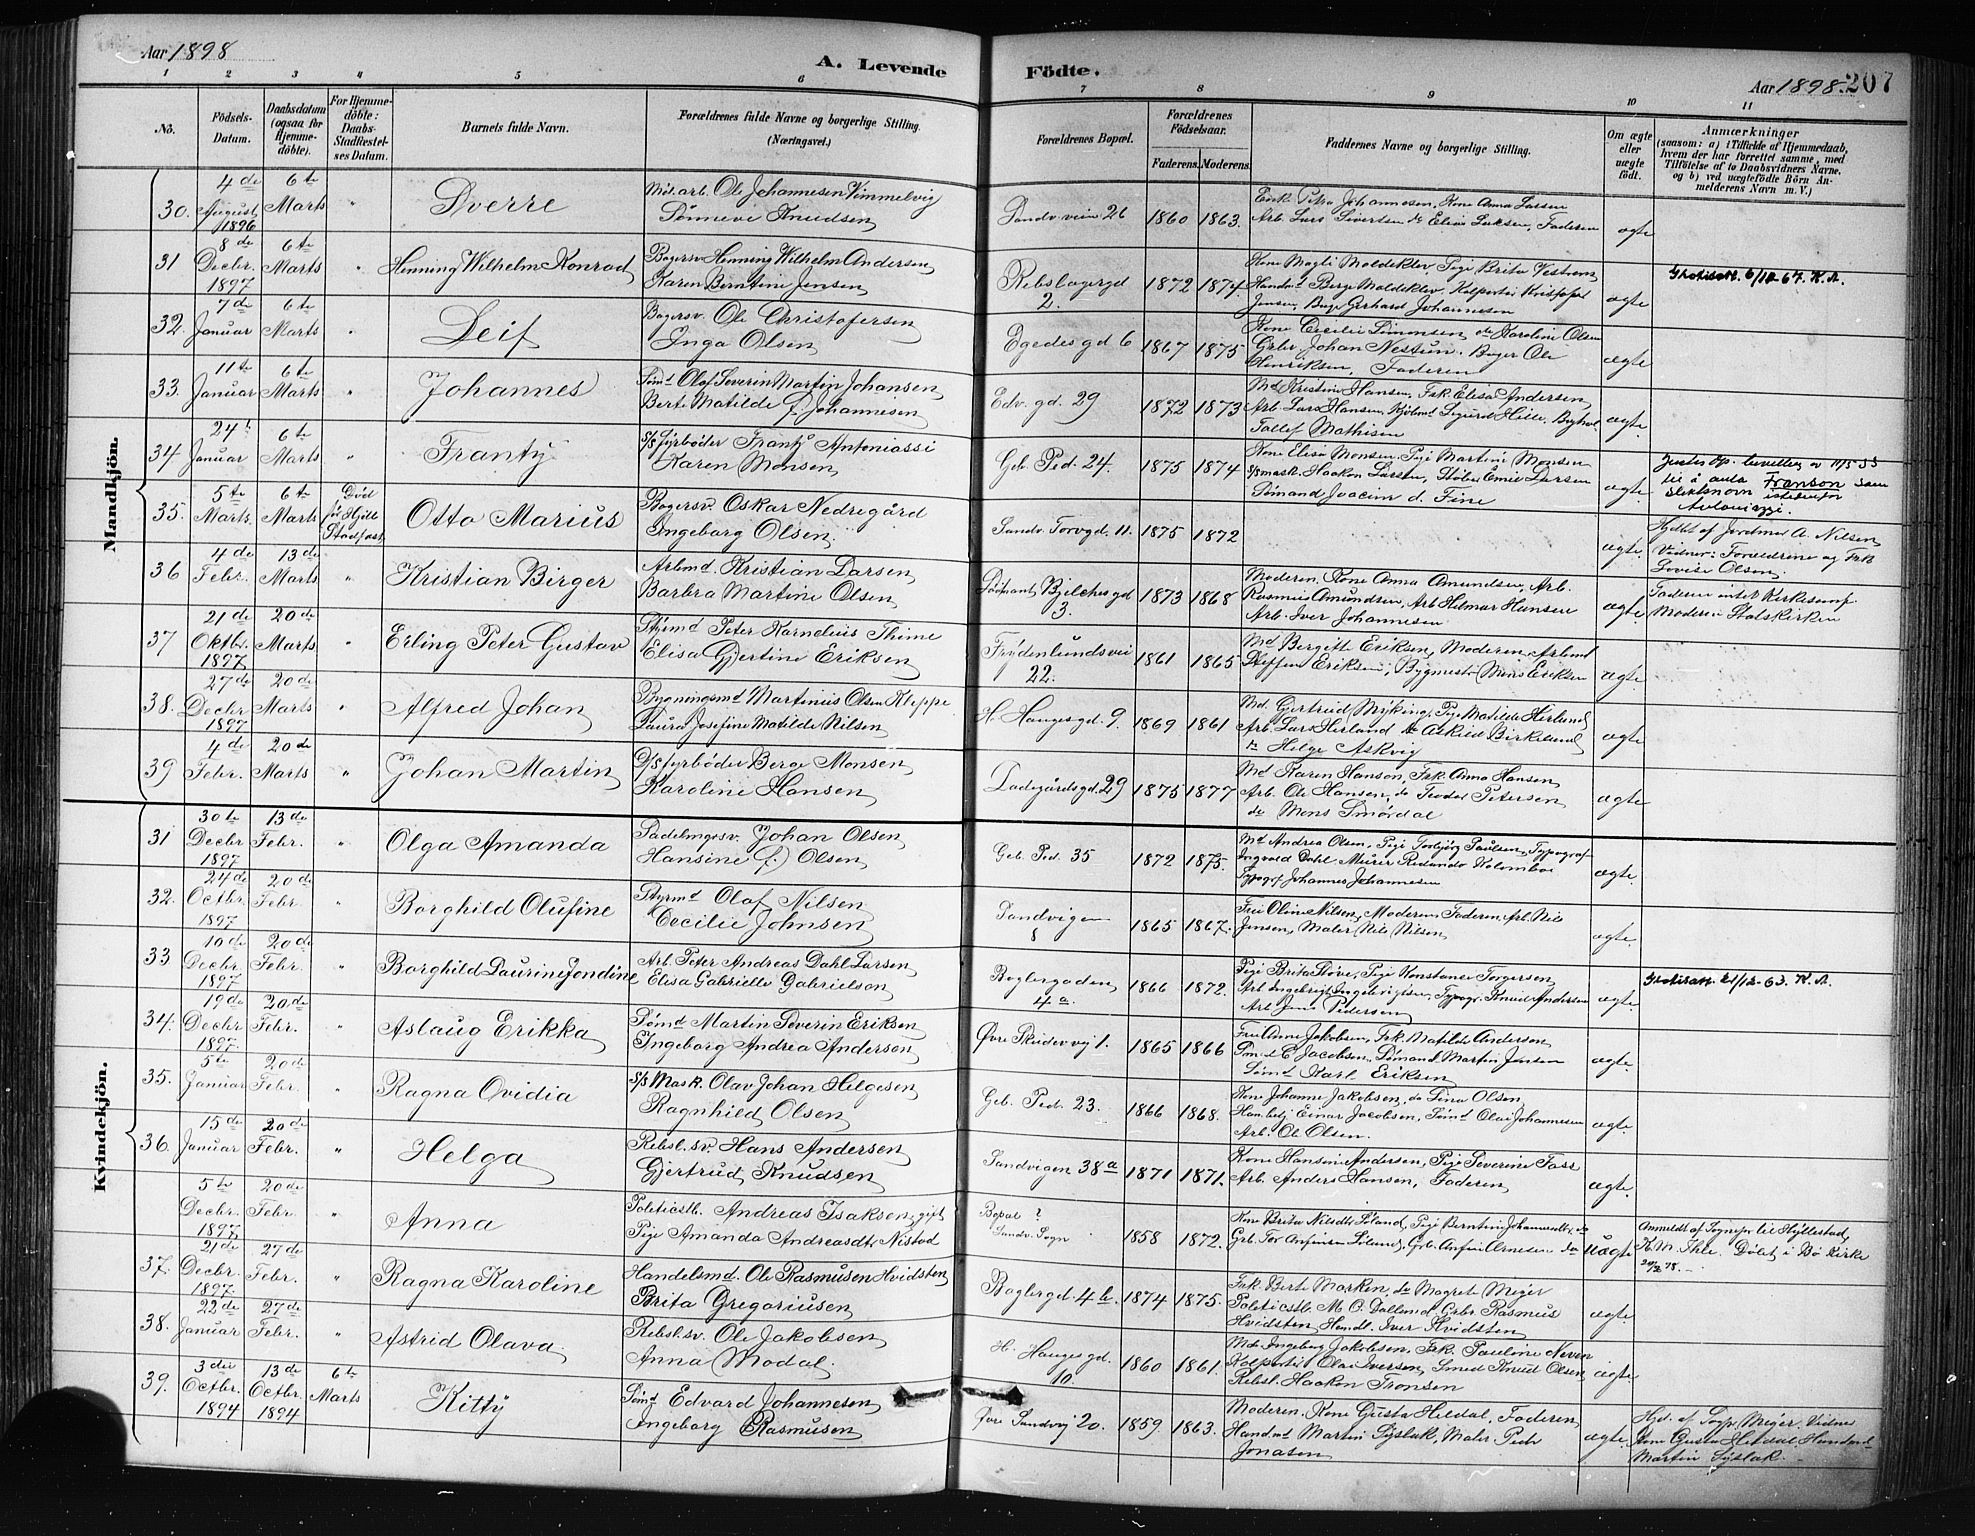 Aar 1898
A. Levende Födte.
Aar 1898. 207
1 2 3 4 5 6 7 8 9 10 11
No.
Födsels-Datum.
Daabsdatum (ogsaa for Hjemme-döbte).
For Hjemme-döbte: Daabs-Stadfæstel-ses Datum.
Barnets fulde Navn.
Forældrenes fulde Navne og borgerlige Stilling.
(Næringsvei.)
Forældrenes Bopæl.
Forældrenes Födselsaar.
Faderens. Moderens.
Faddernes Navne og borgerlige Stilling.
Om ægte eller uægte födt.
Anmærkninger
(saasom: a) i Tilfælde af Hjemmedaab,
hvem der har forrettet samme, med
Tilföielse af to Daabsvidners Navne.
og b) ved uægtefödte Börn An-
melderens Navn m. V.)
Mandkjön.
30. 4de August 1896 6te Marts " Sverre
Ole Johannesen Vimmelvig
Sönneve Knudsen
Sandv veien 26 1860 1863.
Enk Petra Johannesen, Kone Anna Larsen
Arb. Lars Sivertsen, Faderen
ægte
31 8de Decbr. 1897 6te Marts " Henning Wilhelm Konrad
Bagersv. Henning Wilhelm Andersen
Karen Berntine Jensen
Rebslagergd 2. 1872 1874.
Jensen, Bager Gerhard Johannesen
ægte
6/12 67. K.A.
32. 7de Januar 6te Marts " Leif
Bagersv. Ole Christofersen
Inga Olsen
Egedes gd 6 1867 1875
Kone Cecilie Simonsen, do Karoline Olsen
Johan Nestun. Bager Ole
Henriksen, Faderen
ægte
33. 11te Januar 6te Marts " Johannes
Sömd Olaf Severin Martin Johansen
Berte Matilde J. Johannesen
Edv. gd. 29 1872 1873
Md Kristine Hansen, Frk. Elisa Andersen,
Arb. Lars Hansen, Sigurd Hille,
Tollef Mathisen
ægte
34 24 Januar 6te Marts " Frantz
S/s fyrböder Frantz Antoniassi
Karen Monsen
Geb. Ped. 24. 1875 1874
Kone Elisa Monsen, Pige Martine Monsen
S/s mask. Haakon Larsen, Emil Larsen
Sömand Joacim d. Fine
ægte
Justis Dp. bevilling av
til å anta Franson som
slektsnavn istedenfor
35. 5te Marts 6te Marts Död för Hjelte Stadfæst Otto Marius
Bagersv. Oskar Nedregård
Ingeborg Olsen.
Sandv. Torvgd. 11. 1875 1872
ægte.
Hjdbt af Jordmor A. Nilsen,
Vidner: Forældrene og Frk
Lovise Olsen.
36 4de Febr. 13de Marts " Kristian Birger
Arbmd. Kristian Larsen
Barbra Martine Olsen
Bjelchesgd 3. 1873 1868
Moderen, Kone Anna Amundsen, Arb.
Rasmus Amundsen, Arb Helmar Hansen
Arb. Iver Johannesen
ægte
Faderen intet Kirkesamf.
Moderen Statskirken
37 21de Oktbr. 1897 20de Marts " Erling Peter Gustav
Styrmd Peter Kornelius Thime
Elisa Gjertine Eriksen
Frydenlundsvei 22. 1861 1865
Md Bergitte Eriksen, Moderen, Arbmd
Steffen Eriksen, Bygmester Mons Eriksen
ægte
38. 27de Decbr. 1897 20de Marts " Alfred Johan
Bygningsmd Martinius Olsen Kleppe
Laura Josefine Matilde Nilsen
H. Hauges gd. 9. 1869 1861
Md. Gjertrud Myking, Pige Matilde Herland
Arb. Lars Herland do Askild Birkeland
do Helge Askvig
ægte
39 4de Febr. 20de Marts " Johan Martin
D/s fyrböder Berge Monsen
Karoline Hansen
Ladegårdsgd. 29 1875 1877
Md Karen Hanson, Frk. Anna Hansen
Arb. Ole Hansen, do Teodor Petersen
do Mons Smördal
ægte
Kvindekjön.
31 30te Decbr 1897 13de Febr. " Olga Amanda
Sadelmgrsv. Johan Olsen
Hansine J. Olsen
Geb. Ped. 35 1872 1875.
Md Andrea Olsen, Pige Torbjörg Paulsen, Typograf
Ingvald Dahl, Murer
Typograf Johannes Johannesen
ægte.
32. 24de Octbr. 1897 20de Febr. " Borghild Olufine
Styrmd Olaf Nilsen
Cecilie Johnsen
Sandvigen 8 1865 1867.
Fru Oline Nilsen, Moderen, Faderen, Arb. Nils
Jensen, Maler Nils Nilsen
ægte.
33 10de Decbr. 1897 20de Febr. " Borghild Laurine Jondine
Arb. Peter Andreas Dahl Larsen
Elisa Gabrielle Gabrielsen
Baglergaden 4a. 1866 1872.
Pige Brita Störe, Pige Konstance Torgersen
Arb Ingebrigt Ingebrigtsen, Typogr. Knud Andersen
Arb Jens Pedersen
ægte.
21/12-63. K.A.
34. 19de Decbr 1897. 20de Febr. " Aslaug Erikka
Sömd Martin Severin Eriksen
Ingeborg Andrea Andersen
Övre Skidevvej 1. 1865 1866
Fru Anne Jakobsen, Frk. Matilde Andersen,
E Jacobsen, Sömand Martin Jensen
Sömd Karl Eriksen
ægte.
35. 5te Januar 20de Febr. " Ragna Ovidia
S/s Mask. Olav Johan Helgesen
Ragnhild Olsen
Geb. Ped. 23. 1866 1868.
Kone Johanne Jakobsen, do Lina Olsen,
Einar Jacobsen, Sömd Olai Johannesen
Arb. Ole Olsen.
ægte.
36. 15de Januar 20de Febr. " Helga
Rebsl.sv. Hans Andersen
Gjertrud Knudsen
Sandvigen 38a 1871 1871.
Kone Hansine Andersen, Pige Severine
Arb. Anders Hansen, Faderen
ægte.
5te Decbr. 1897 20de Febr. " Anna
Politictb. Andreas Isaksen, gift
Pige Amanda Andreasdtr Nistad
Bopæl? Sandv. Sogn 1858 1872.
Kone Brita Nilsdtr Söland, Pige Berntine
uægte
Anmeldt af Sognepr. til Hyllestad,
K. M. Ihle. Döbt i Bö Kirke
20/2 98.
37. 21de Decbr. 1897. 27de Febr. " Ragna Karoline
Handelsmd. Ole Rasmusen Hvidsten
Brita Gregoriusen
Baglergd. 4b. 1874 1875.
Frk. Berte Marken, do Magret Meyer
Politictb. M. O. Dalland, Rasmus
Hvidsten, Handl. Iver Hvidsten
ægte
38. 22de Januar 27de Febr. " Astrid Olava
Rebsl.sv. Ole Jakobsen
Anna Modal.
H. Hauges gd. 10. 1860 1861.
Md. Ingeborg Jakobsen, Frk. Pauline Neven
Kolportör Olai Iversen, Smed Knud Olsen,
Rebsl. Haakon Tronsen
ægte
39. 3die Octbr. 1894 13de Octbr. 1894 6te Marts Kitty
Sömd Edvard Johannesen
Ingeborg Rasmusen
Övr. Sandvj 20. 1859 1863.
Moderen, Kone Gusta Hildal, Faderen
Handmd Martin Syslak, Maler Peder
Jonasen
ægte
Hjd. af Sogpr Meyer. Vidner
Kone Gusta Hildal Handmd
Martin Syslak.